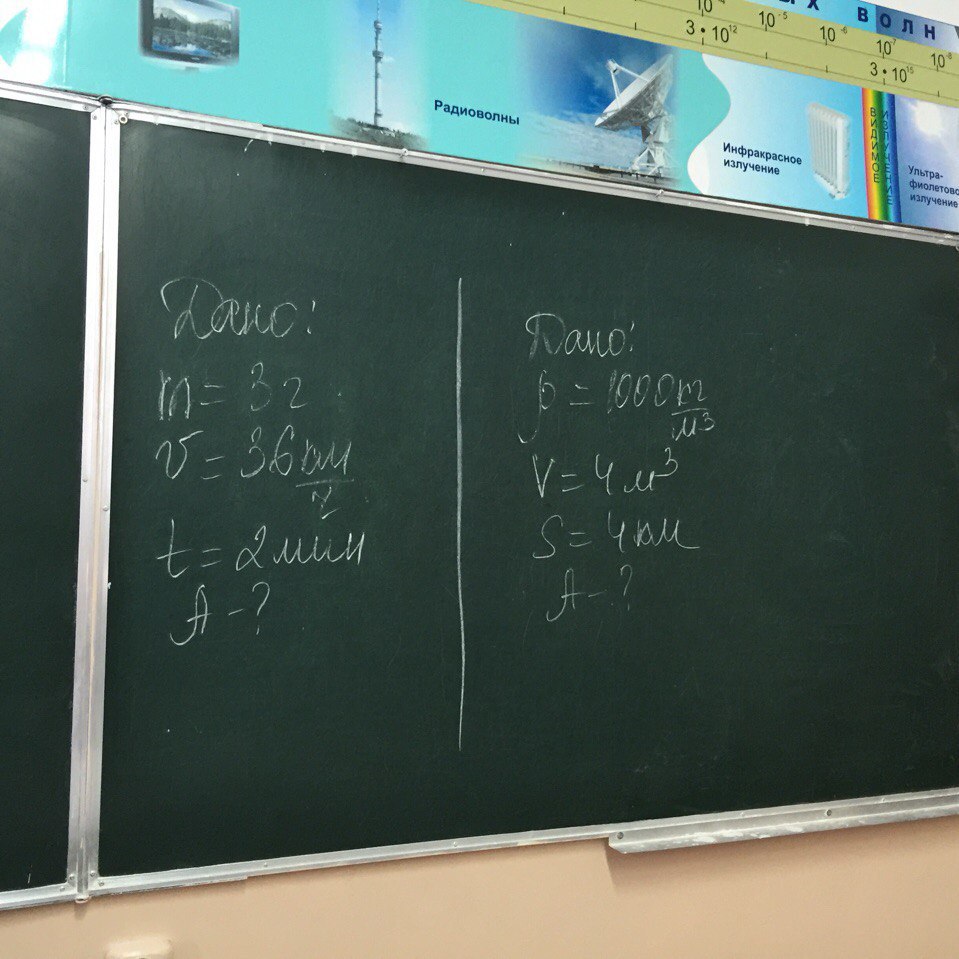 ЫХ ВОЛН
10⁻⁴ 10⁻⁵ 10⁻⁶ 10⁻⁷ 10⁻⁸
3•10¹² 3•10¹⁵
Радиоволны
Инфракрасное
излучение
ВИДИМОЕ
ИЗЛУЧЕНИЕ
Ультра-
фиолетово
излучение
Дано:
m = 3 г
v = 36 км/ч
t = 2 мин
A - ?
Дано:
ρ = 1000 кг/м³
V = 4 м³
S = 4 км
A - ?